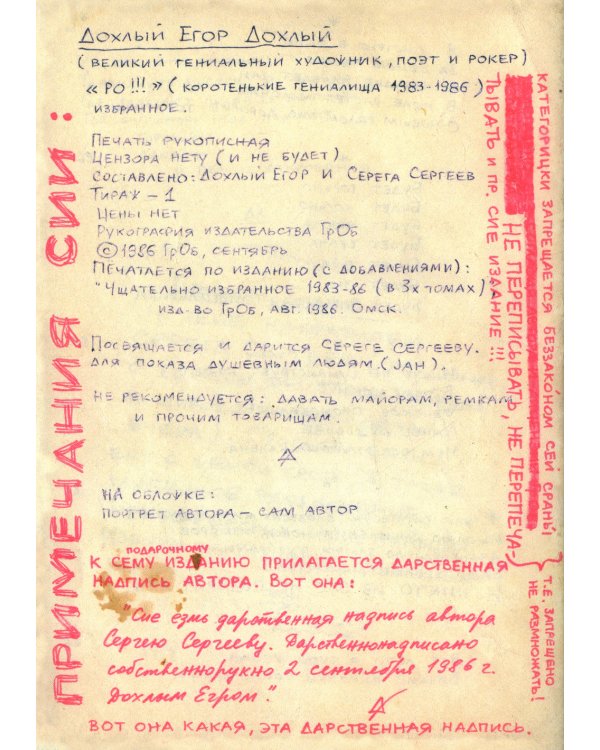 Дохлый Егор Дохлый
(великий гениальный художник, поэт и рокер)
«РО!!!» (коротенькие гениалища 1983-1986)
избранное.
Печать рукописная
Цензора нету (и не будет)
Составлено: Дохлый Егор и Серега Сергеев
Тираж – 1
Цены нет
Рукография издательства ГрОб
© 1986 ГрОб, сентябрь
Печатлется по изданию (с добавлениями):
"Чщательно избранное 1983-86 (в 3х томах)"
изд-во ГрОб, авг. 1986. Омск.
Посвящается и дарится Сереге Сергееву.
для показа душевным людям. (Jан).
не рекомендуется: давать майорам, ремкам
и прочим товарищам.
А
на обложке:
портрет автора – сам автор
к сему подарочному изданию прилагается дарственная
надпись автора. Вот она:
"Сие езмь дарственная надпись автора
Сергею Сергееву. Дарственнонадписано
собственнорукно 2 сентября 1986 г.
Дохлым Егром".
А
вот она какая, эта дарственная надпись.
ПРИМЕЧАНИЯ СИИ:
категорицки запрещается беззаконом сей сраны
не переписывать, не перепеча-
тывать и пр. сие издание!!!
т.е. запрещено
не размножать!